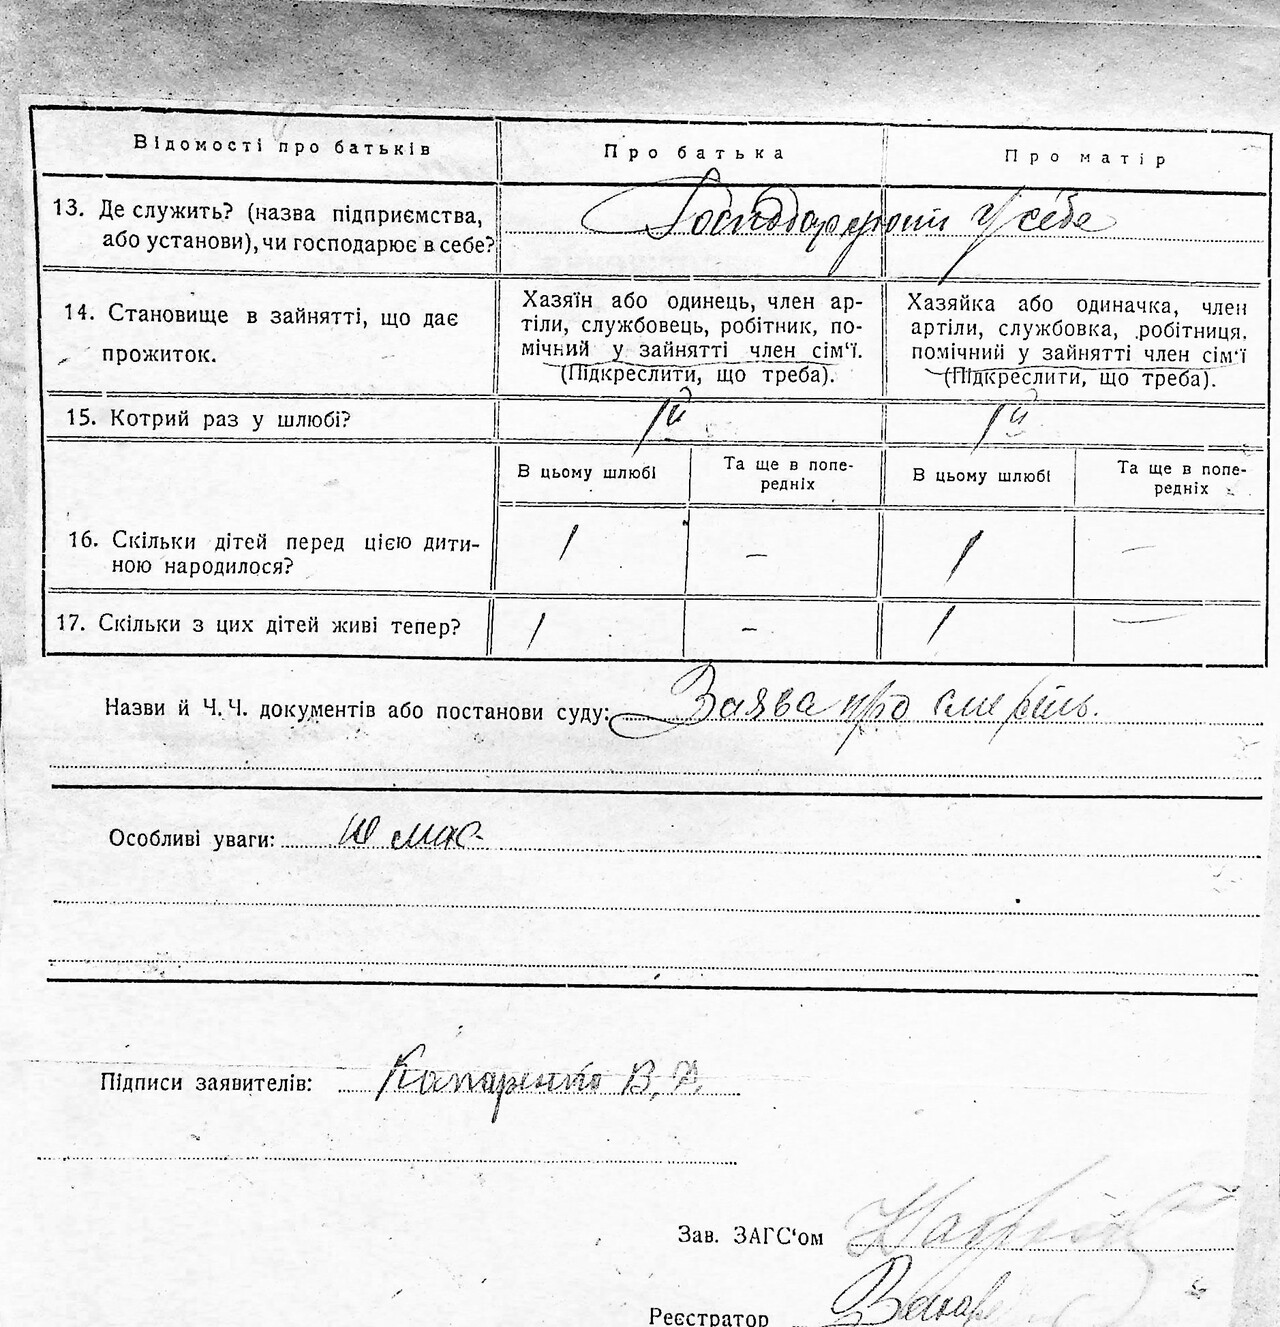 Відомості про батьків Про батька Про матір
13. Де служить? (назва підприємства, або установи), чи господарює в себе? Господарюють у себе
14. Становище в зайнятті, що дає прожиток.
Хазяїн або одинець, член ар-
тіли, службовець, робітник, по-
мічний у зайнятті член сім'ї.
(Підкреслити, що треба).
Хазяйка або одиначка, член
артіли, службовка, робітниця.
помічний у зайнятті член сім'ї
(Підкреслити, що треба).
15. Котрий раз у шлюбі? 1й 1й
В цьому шлюбі Та ще в попе-
редніх В цьому шлюбі Та ще в попе-
редніх
16. Скільки дітей перед цією дити-
ною народилося? 1 – 1 –
17. Скільки з цих дітей живі тепер? 1 – 1 –
Назви й Ч.Ч. документів або постанови суду: Заява про смерть.
Особливі уваги:
Підписи заявителів: В.
Зав. ЗАГС'ом
Реєстратор